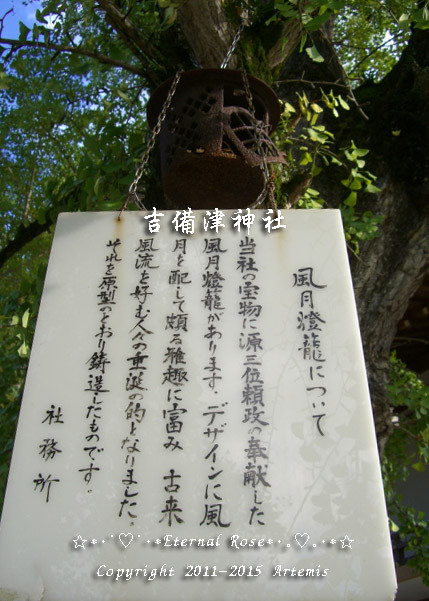 吉備津神社
風月燈籠について
当社の宝物に源三位頼政の奉献した
風月燈籠があります。デザインに風
月を配して頗る雅趣に富み 古来
風流を好む人々の垂涎の的となりました。
それを原型のとおり鋳造したものです。
社務所
☆*・゜♡゜・*Eternal Rose*・。♡。・*☆
Copyright 2011-2015 Artemis